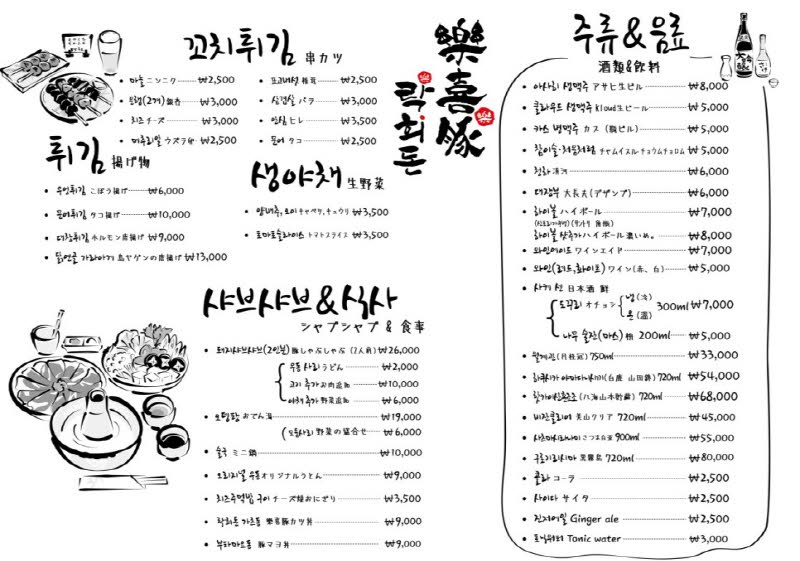 꼬치튀김 串カツ
마늘 ニンニク ₩2,500
은행(2개) 銀杏 ₩3,000
치즈 チーズ ₩3,000
메추리알 ウズラ卵 ₩2,500
표고버섯 椎茸 ₩2,500
삼겹살 バラ ₩3,000
안심 ヒレ ₩3,000
문어 タコ ₩2,500
튀김 揚げ物
우엉튀김 ごぼう揚げ ₩6,000
문어튀김 タコ揚げ ₩10,000
대창튀김 ホルモン唐揚げ ₩9,000
닭연골 가라아게 鳥ヤゲンの唐揚げ ₩13,000
생야채 生野菜
양배추, 오이 キャベツ, キュウリ ₩3,500
토마토슬라이스 トマトスライス ₩3,500
樂喜豚
락희돈
샤브샤브&식사
シャブシャブ & 食事
돼지샤브샤브(2인분) 豚しゃぶしゃぶ (2人前) ₩26,000
우동 사리 うどん ₩2,000
고기 추가 お肉追加 ₩10,000
야채 추가 野菜追加 ₩6,000
오뎅탕 おでん湯 ₩19,000
모둠사리 野菜の盛合せ ₩6,000
술국 ミニ鍋 ₩10,000
오리지널 우동 オリジナルうどん ₩9,000
치즈주먹밥 구이 チーズ焼おにぎり ₩3,500
락희돈 가츠동 樂喜豚カツ丼 ₩9,000
부타마요동 豚マヨ丼 ₩9,000
주류&음료
酒類&飲料
아사히 생맥주 アサヒ生ビル ₩8,000
클라우드 생맥주 Kloud生ビール ₩5,000
카스 병맥주 カス (瓶ビル) ₩5,000
참이슬·처음처럼 チャムイスル·チョウムチョロム ₩5,000
청하 清河 ₩6,000
대장부 大長夫(デザンブ) ₩6,000
하이볼 ハイボール ₩7,000
하이볼 샷추가 ハイボール 濃いめ。 ₩8,000
와인에이드 ワインエイド ₩7,000
와인(레드,화이트) ワイン(赤、白) ₩5,000
사케 선 日本酒 鮮
도쿠리 オチョン 냉(冷) 온(温) 300ml ₩7,000
나무 술잔(마스) 枡 200ml ₩5,000
월계관(月桂冠) 750ml ₩33,000
720ml ₩54,000
(八海山木貯蔵) 720ml ₩68,000
비잔클리어 美山クリア 720ml ₩45,000
사츠마시라나미 さつま白波 900ml ₩55,000
구로기리시마 黒霧島 720ml ₩80,000
콜라 コーラ ₩2,500
사이다 サイタ ₩2,500
진저에일 Ginger ale ₩2,500
토닉워터 Tonic water ₩3,000